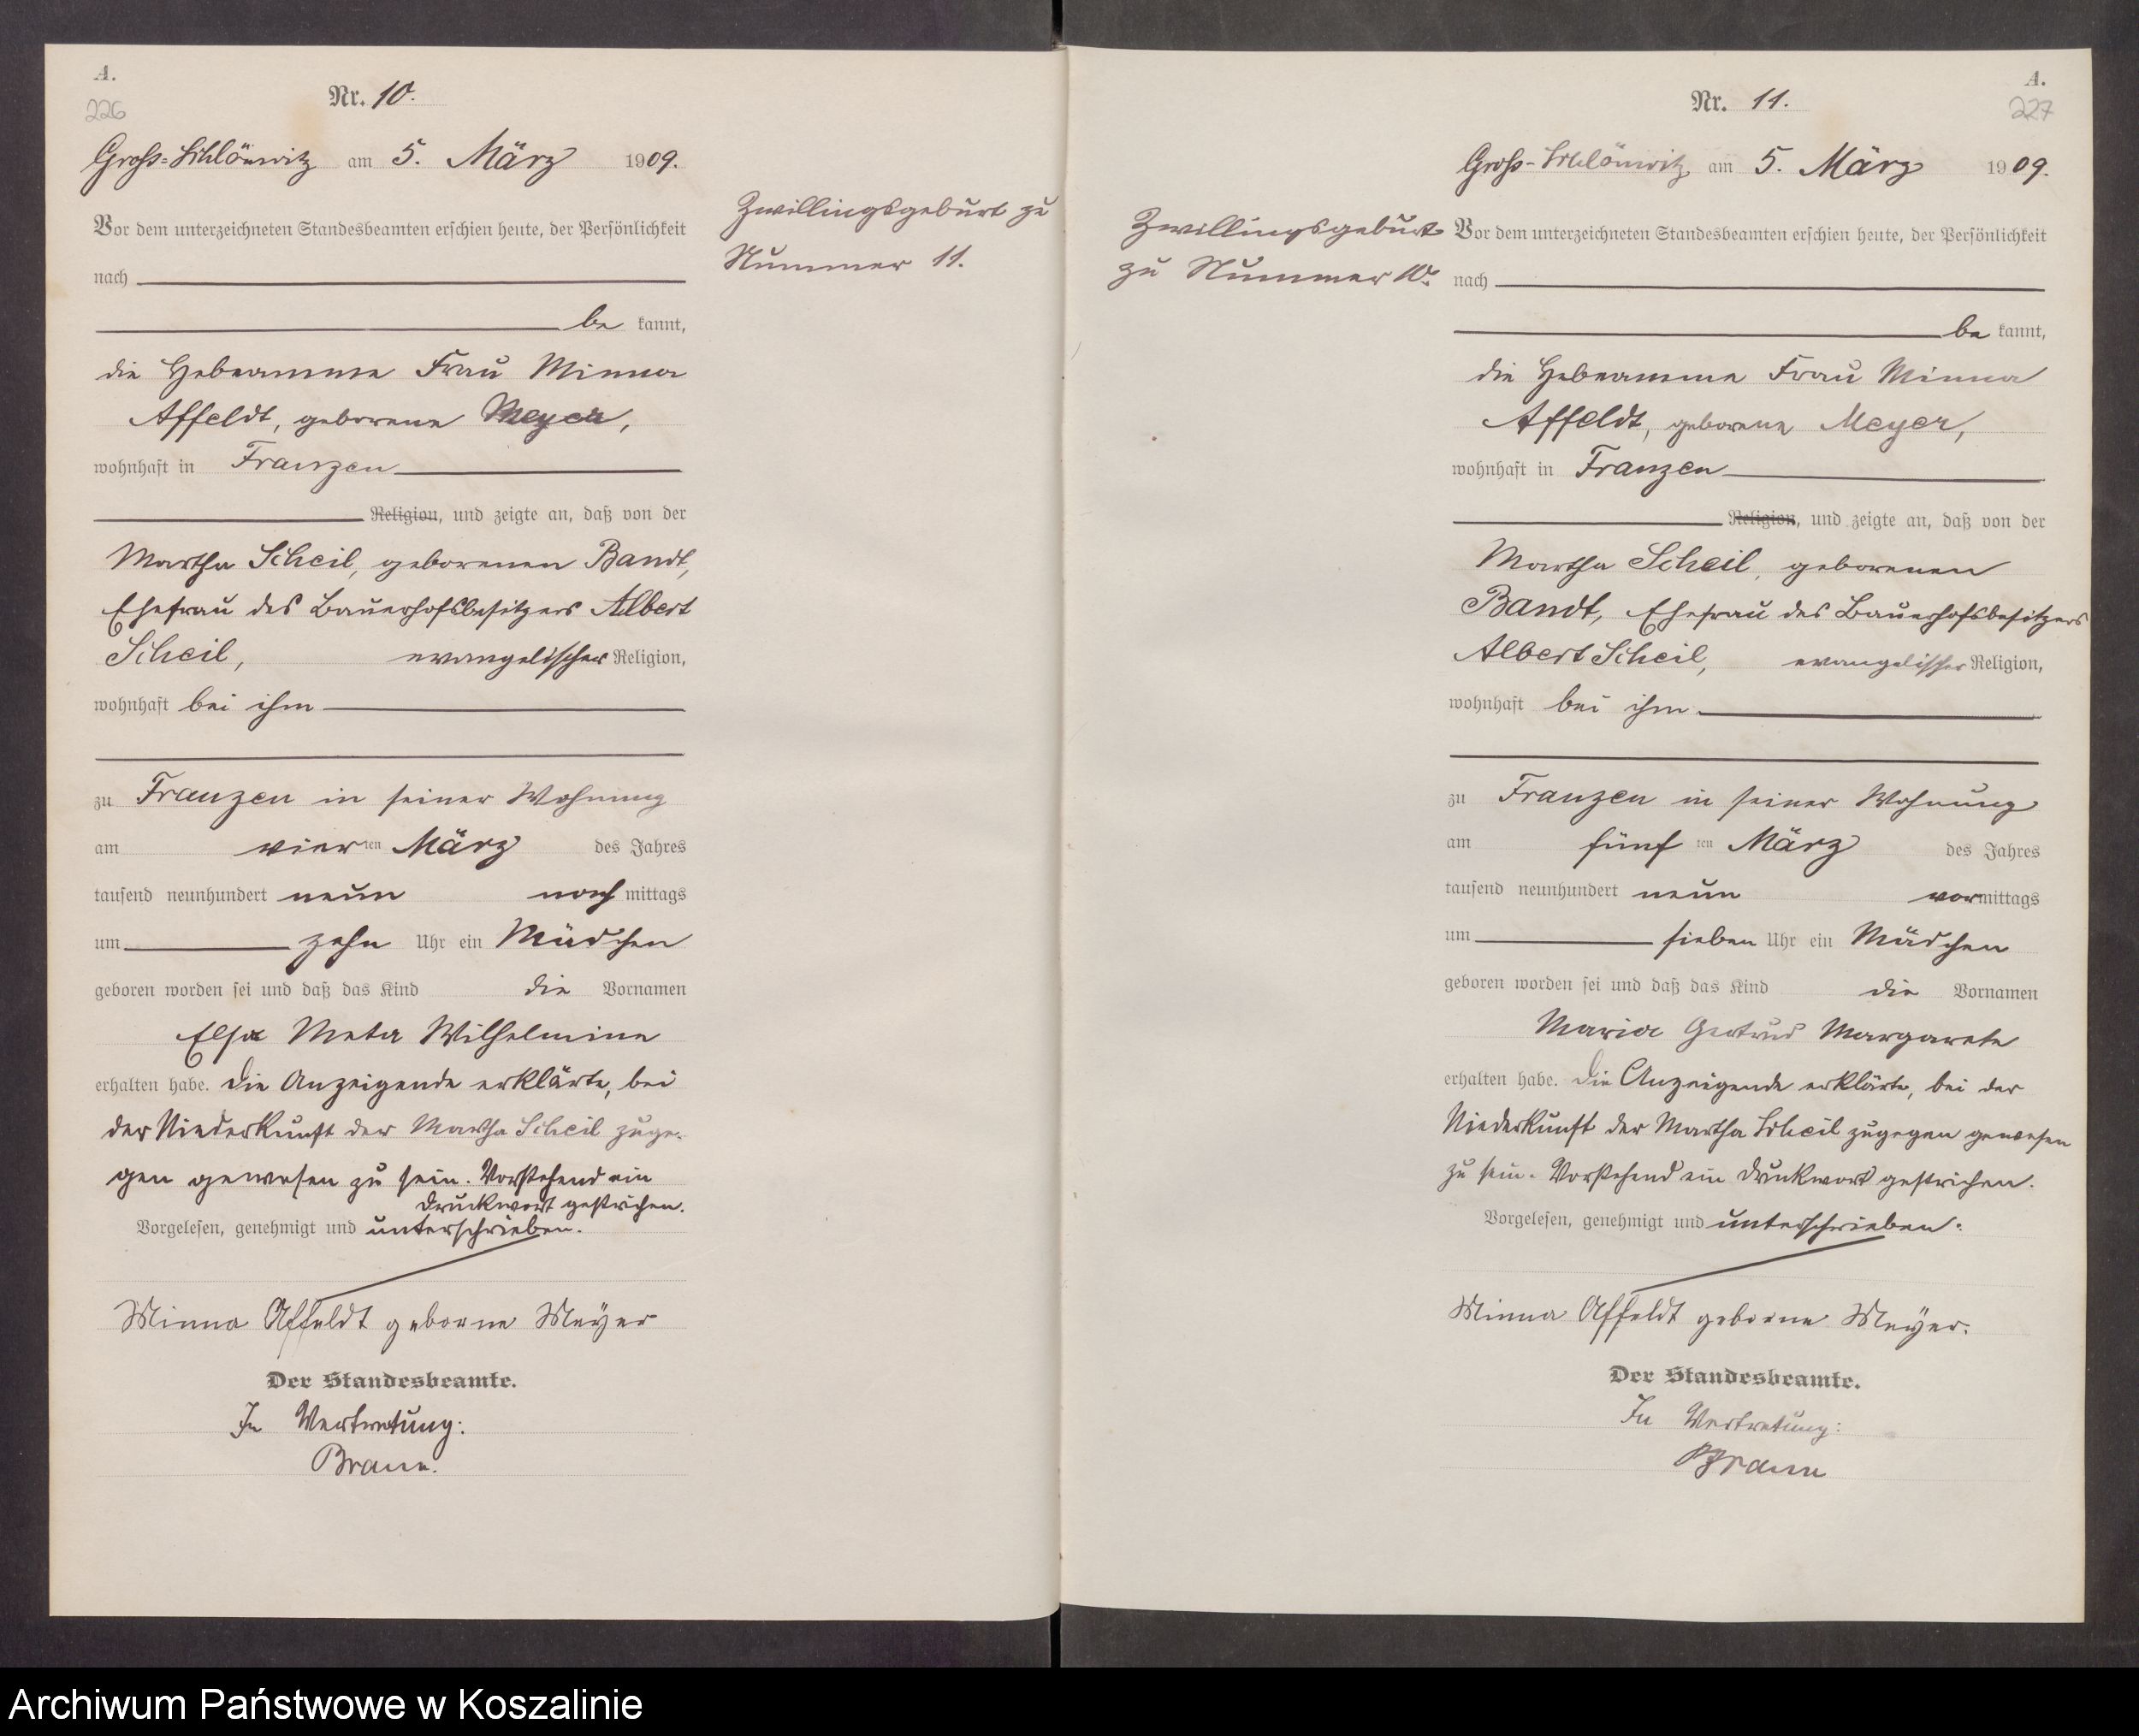 A.
226
Nr. 10.
Groß-Schlönwitz am 5. März 1909.
Vor dem unterzeichneten Standesbeamten erschien heute, der Persönlichkeit
nach
be kannt,
die Hebeamme Frau Minna
Affeldt, geborene Meyer,
wohnhaft in Franzen
Religion, und zeigte an, daß von der
Martha Scheil, geborenen Bandt,
Ehefrau des Bauerhofsbesitzers Albert
Scheil, evangelischer Religion,
wohnhaft bei ihm
zu Franzen in seiner Wohnung
am vier ten März des Jahres
tausend neunhundert neun nach mittags
um zehn Uhr ein Mädchen
geboren worden sei und daß das Kind die Vornamen
Elsa Meta Wilhelmine
erhalten habe. Die Anzeigende erklärte, bei
der Niederkunft der Martha Scheil zuge-
gen gewesen zu sein. Vorstehend ein
Druckwort gestrichen.
Vorgelesen, genehmigt und unterschrieben.
Minna Affeldt geborne Meÿer
Der Standesbeamte.
In Vertretung:
Braun.
Zwillingsgeburt zu
Nummer 11.
A.
227
Nr. 11.
Groß-Schlönwitz am 5. März 1909.
Zwillingsgeburt
zu Nummer 10.
Vor dem unterzeichneten Standesbeamten erschien heute, der Persönlichkeit
nach
be kannt,
die Hebeamme Frau Minna
Affeldt, geborene Meyer,
wohnhaft in Franzen
Religion, und zeigte an, daß von der
Martha Scheil, geborenen
Bandt, Ehefrau des Bauerhofsbesitzers
Albert Scheil, evangelischer Religion,
wohnhaft bei ihm
zu Franzen in seiner Wohnung
am fünf ten März des Jahres
tausend neunhundert neun vormittags
um sieben Uhr ein Mädchen
geboren worden sei und daß das Kind die Vornamen
Maria Gertrud Margarete
erhalten habe. Die Anzeigende erklärte, bei der
Niederkunft der Martha Scheil zugegen gewesen
zu sein. Vorstehend ein Druckwort gestrichen.
Vorgelesen, genehmigt und unterschrieben.
Minna Affeldt geborne Meÿer.
Der Standesbeamte.
In Vertretung:
Braun
Archiwum Państwowe w Koszalinie